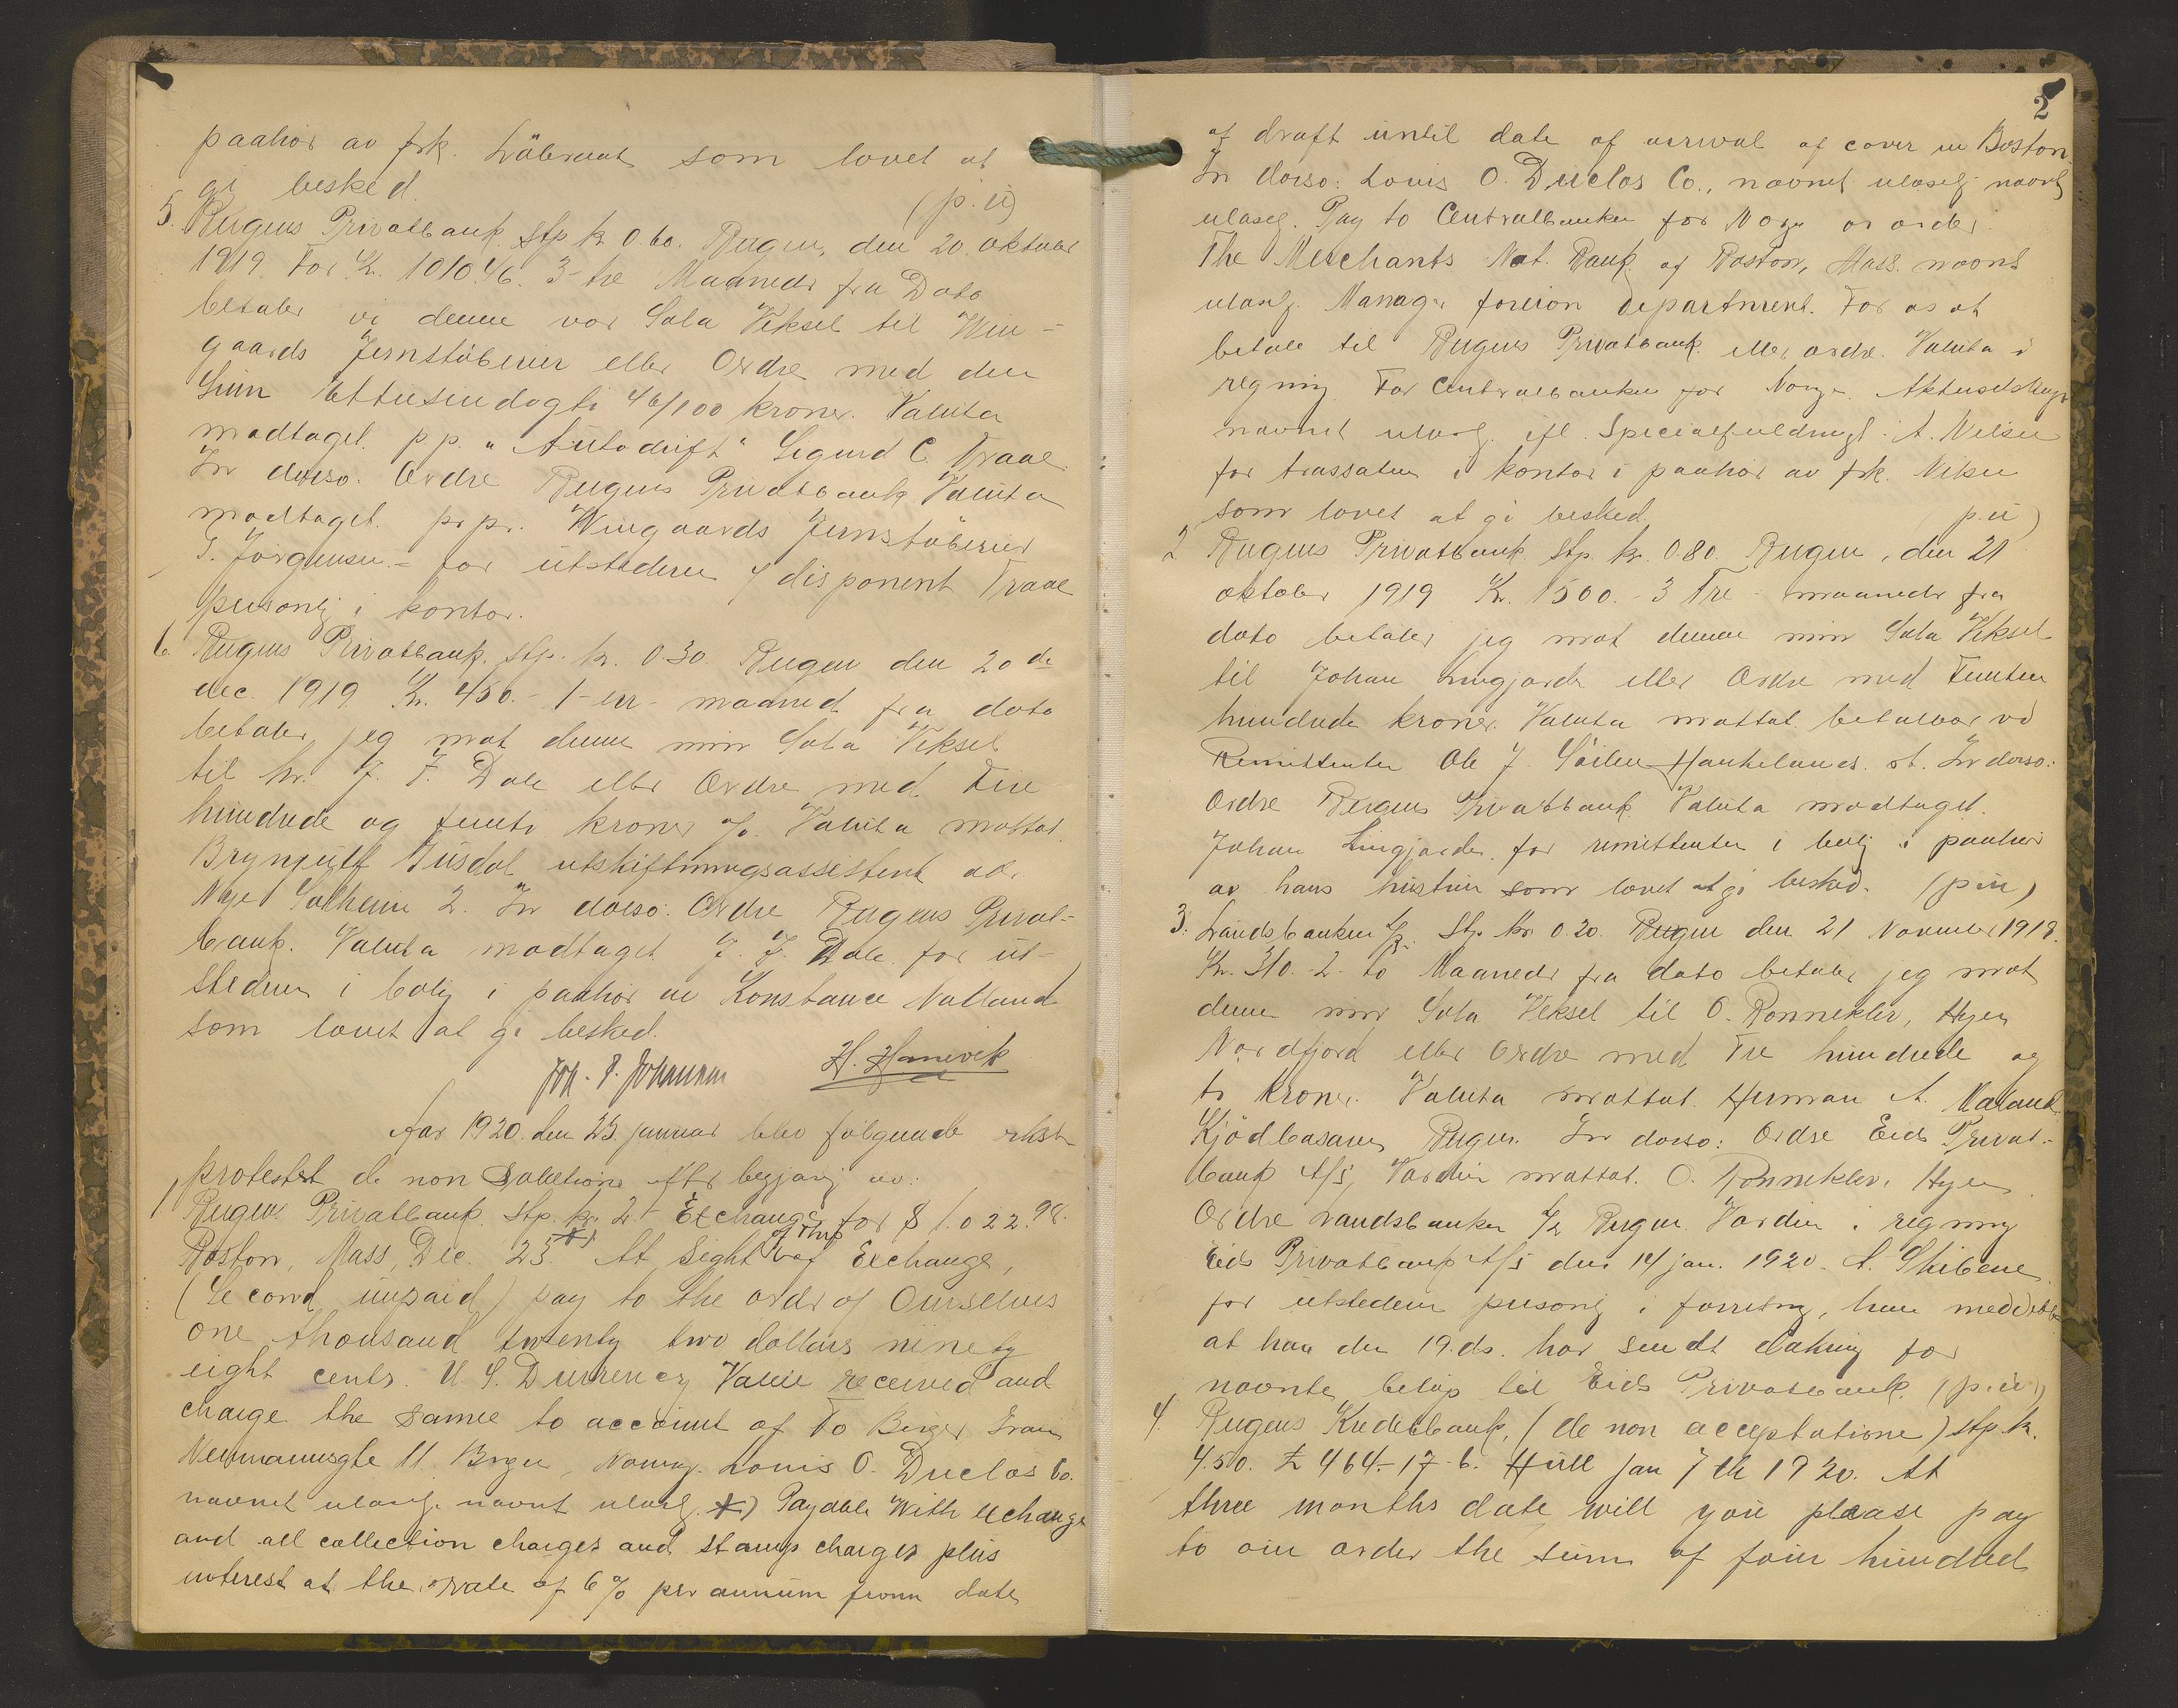 paahør av frk. som lovet at
gi besked. (p. u)
5. Bergens Privatbank. Stp. kr. 0.60. Bergen, den 20. oktober
1919. For Kr. 1010.46. 3-tre Maaneder fra Dato
betaler vi denne vor Sola Veksel til Win-
gaards Jernstöberier eller Ordre med den
Sum Ettusindogti 46/100 kroner. Valuta
modtaget. p.p. "Autodrift" Sigurd C. Traae.
In dorso. Ordre Bergens Privatbank Valuta
modtaget. pr. pr. Wingaards Jernstöberier
Jörgensen. - for utstederen v/ disponent Traae
personlig i kontor.
6. Bergens Privatbank. Stp. kr. 0.30. Bergen den 20de
dec. 1919 Kr. 450.- 1-en- maaned fra dato
betaler jeg mot denne min Sola Veksel
til hr. J. J. Dale eller Ordre med Fire
hundrede og femti kroner %. Valuta mottat
Brynjulf utskiftningsassistent ad.
Nye Solheim 2. In dorso: Ordre Bergens Privat-
bank. Valuta modtaget J. J. Dale. for ut-
stederen i bolig i paahør av Konstance Natland
som lovet at gi besked.
Joh. P. Johannesen H. Hanevik
Aar 1920. den 23. januar blev følgende
protestert de non solutione efter begjæring av:
1. Bergens Privatbank. Stp. kr. 2.- Exchange for $ 1.022.98.
Boston, Mass, Dec. 23. *) At Sight of this of Exchange,
(Second unpaid) pay to the order of Ourselves
one thousand twenty two dollars ninety
eight cents. U. S. Durrency Value received and
charge the same to account of To Birger
Neumannsgte 11. Bergen, Norway. Louis O. Duclos Co.
navnet ulæselig navnet ulæselig. *) Payable With exchange
and all collection charges and stamp charges plus
interest at the rate of 6% per annum from date
2
of draft until date of arrival of cover in Boston.
In dorso: Louis O. Duclos Co., navnet ulæselig navnet
ulæselig. Pay to Centralbanken for Norge or order.
The Merchants Nat. Bank. of Boston, Mass. navnet
ulæselig. Manager foreion Department. For os at
betale til Bergens Privatbank. eller ordre. Valuta i
regning. For Centralbanken for Norge. Aktieselskap
navnet ulæselig. ifl. Specialfuldmagt. A. Nilsen
for trassaten i kontor i paahør av frk. Nilsen
som lovet at gi besked. p.u)
2 Bergens Privatbank Stp. kr. 0.80. Bergen, den 21
oktober 1919 Kr. 1500.- 3 Tre - maaneder fra
dato betaler jeg mot denne min Sola Veksel
til Johan Lingjærde eller Ordre med Femten
hundrede kroner. Valuta mottat. betalbar ved
Remittenten Ole J. Haukelandss. st. In dorso:
Ordre Bergens Privatbank Valuta modtaget.
Johan Lingjærde. for remittenten i bolig i paahør
av hans hustru som lovet at gi besked. (p.u)
3. Landsbanken A/S. Stp. kr. 0.20. Bergen den 21 November 1919.
Kr. 310.-2- to Maaneder fra dato betaler jeg mot
denne min Sola Veksel til O. Rønnekleiv, Hyen
Nordfjord eller Ordre med Tre hundrede og
ti kroner. Valuta mottat. Herman A. Maland.
Kjødbasaren, Bergen. In dorso: Ordre Eids Privat-
bank A/S, Værdien mottat. O. Rønnekleiv, Hyen.
Ordre Landsbanken A/S Bergen. Værdien i regning
Eids Privatbank A/S den 14 jan. 1920. A.
for utstederen personlig i forretning, han meddelte
at han den 19. ds. har sendt dækning for
nævnte beløp til Eids Privatbank. (p.u.)
4. Bergens Kreditbank, (de non acceptatione) Stp. kr.
4.50. £ 464.-17-6. Hull Jan 7th 1920. At
three months date will you please pay
to our order the sum of four hundred